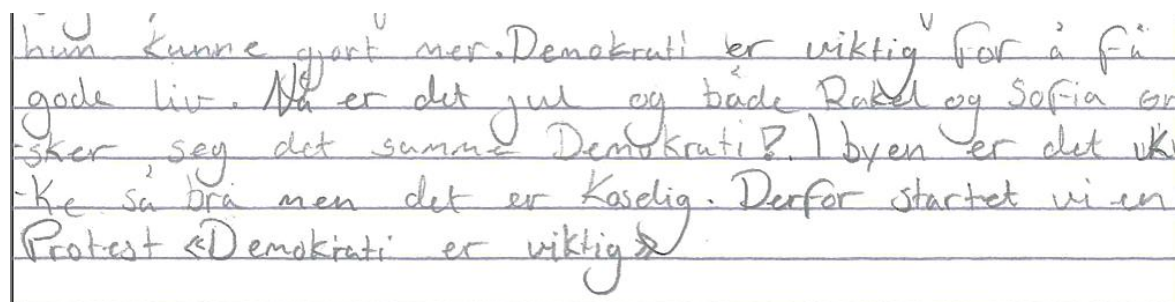 hun kunne gjort mer. Demokrati er viktig for å få
gode liv. Nå er det jul og både Rakel og Sofia øn
-sker seg det samme Demokrati?. I byen er det ik
-ke så bra men det er Koselig. Derfor startet vi en
Protest «Demokrati er viktig»